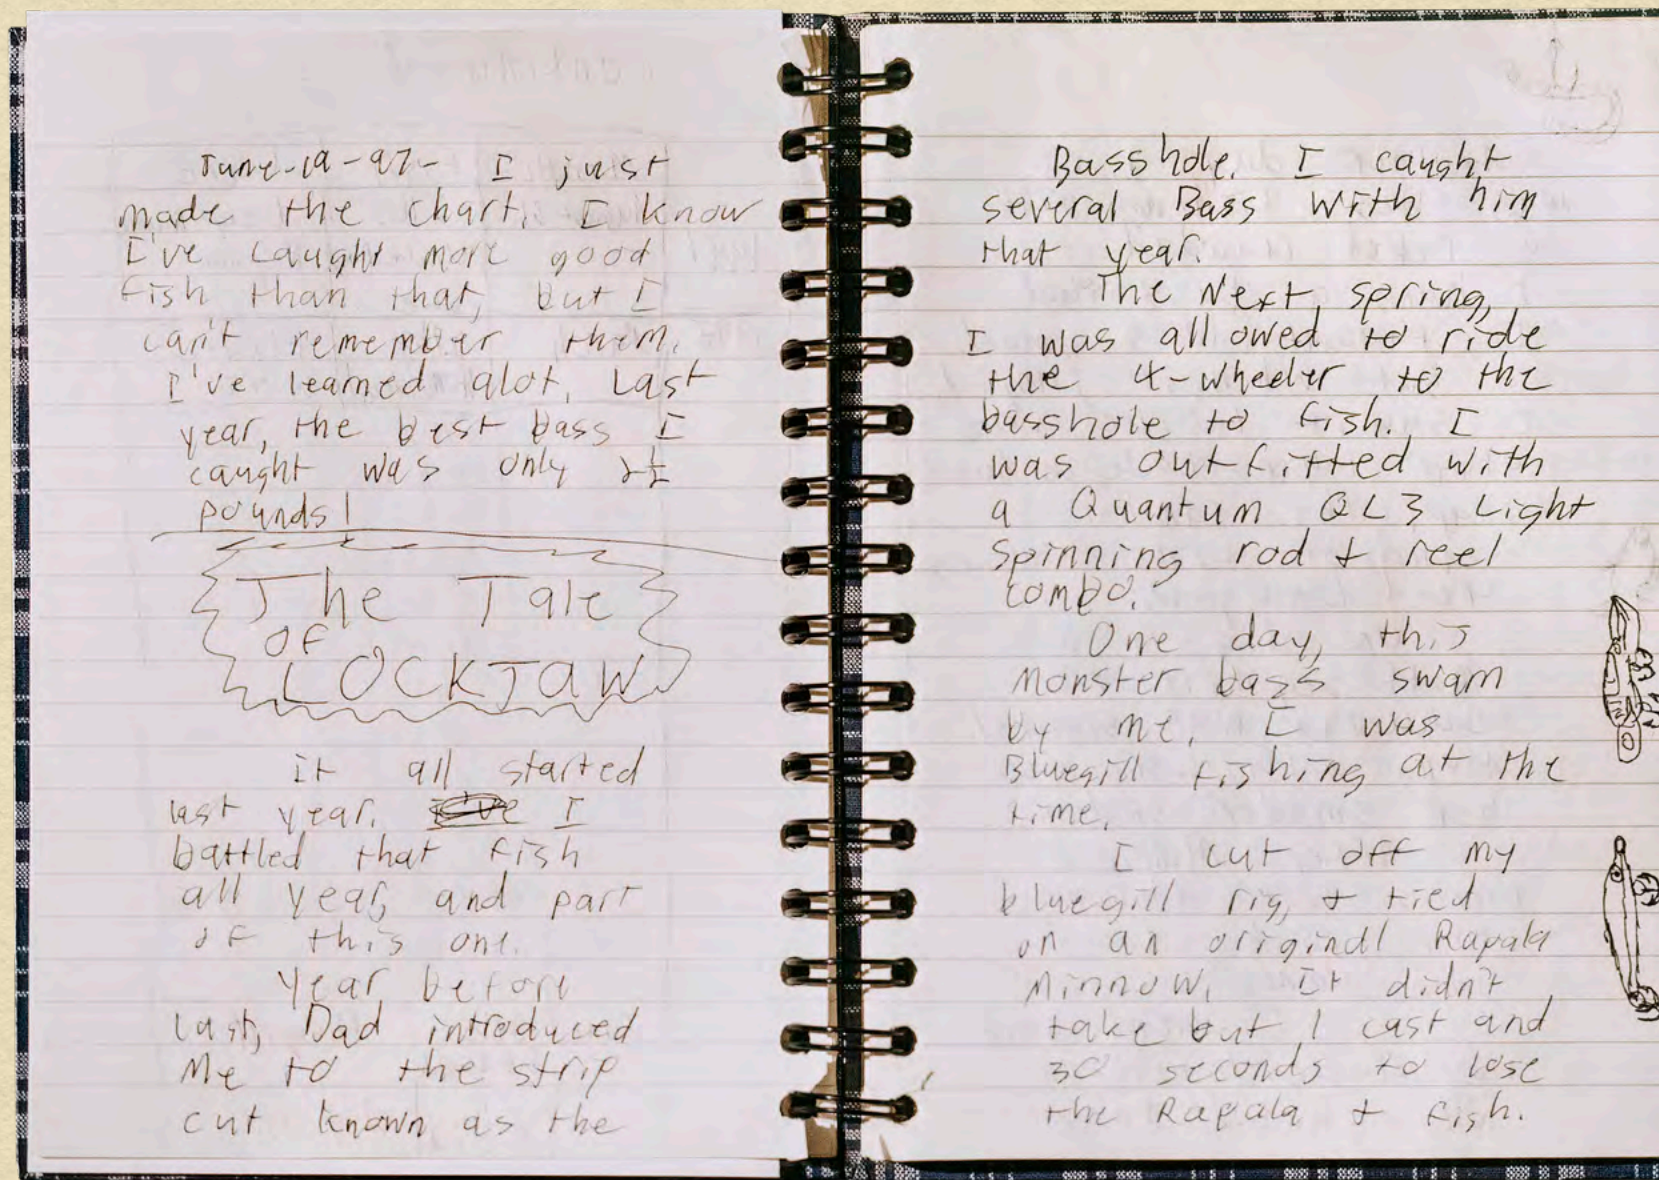 June-19-97- I just
made the chart. I know
I've caught more good
fish than that, but I
can't remember them.
I've learned alot. Last
year, the best bass I
caught was only 2½
pounds!
The Tale
OF
LOCKJAW
it all started
last year. I've I
battled that fish
all year, and part
of this one.
Year before
last, Dad introduced
me to the strip
cut known as the
Basshole. I caught
several Bass with him
that year.
The Next spring,
I was allowed to ride
the 4-wheeler to the
basshole to fish. I
was outfitted with
a Quantum QL3 Light
spinning rod + reel
combo.
One day, this
monster bass swam
by me. I was
Bluegill fishing at the
time.
I cut off my
bluegill rig, + tied
on an original Rapala
Minnow. It didn't
take but 1 cast and
30 seconds to lose
the Rapala + fish.